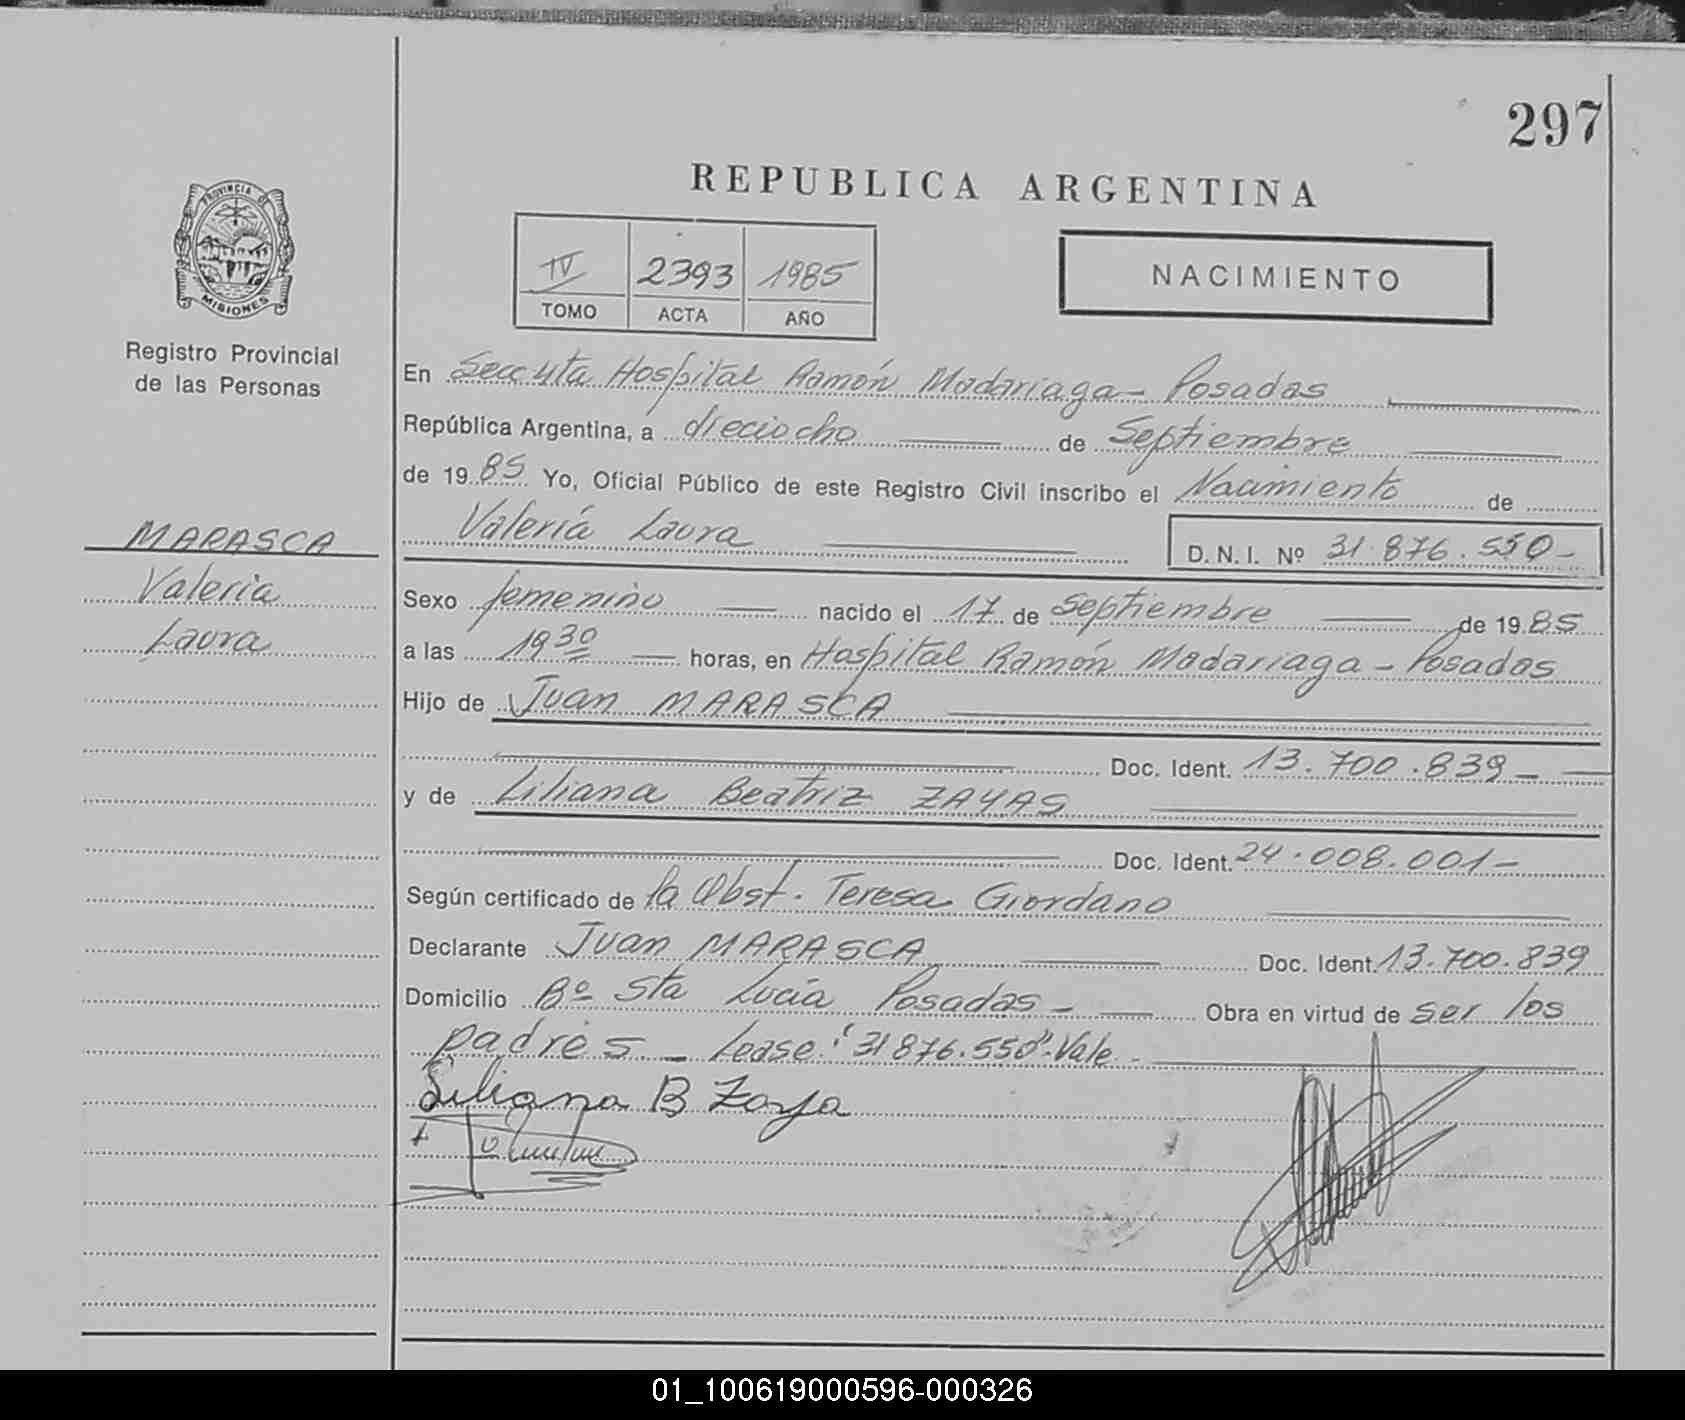 297
REPUBLICA ARGENTINA
PROVINCIA DE
MISIONES
IV 2393 1985
TOMO ACTA AÑO
NACIMIENTO
Registro Provincial
de las Personas
En Secc 4ta Hospital Ramón Madariaga - Posadas
República Argentina, a dieciocho de Septiembre
de 19 85 Yo, Oficial Público de este Registro Civil inscribo el Nacimiento de
MARASCA
Valeria
Laura
Valeria Laura D.N.I. Nº 31.876.550-
Sexo femenino nacido el 17 de Septiembre de 19 85
a las 19 30 horas, en Hospital Ramón Madariaga - Posadas
Hijo de Juan MARASCA
Doc. Ident. 13.700.839-
y de Liliana Beatriz ZAYAS
Doc. Ident. 24.008.001-
Según certificado de la Obst. Teresa Giordano
Declarante Juan MARASCA Doc. Ident. 13.700.839
Domicilio Bº Sta Lucía Posadas - Obra en virtud de ser los
padres - Lease: "31876.550" Vale -
Liliana B Zaya
01_100619000596-000326